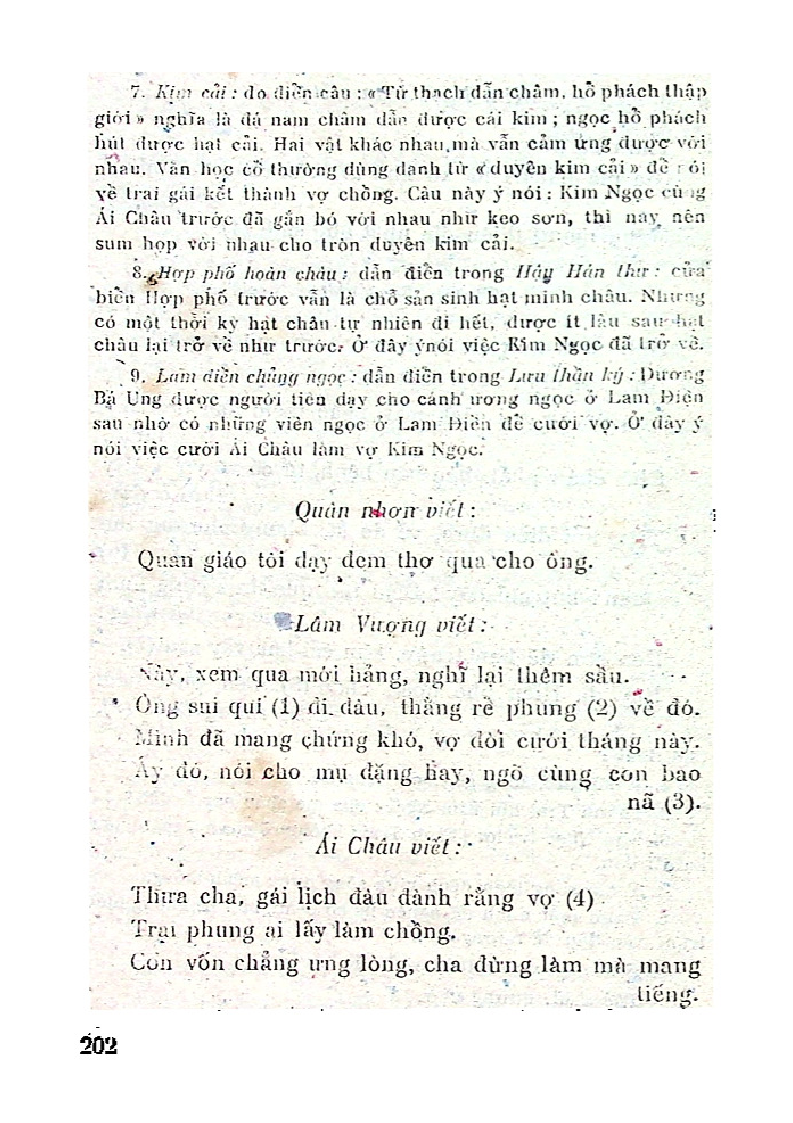 7. Kim cải : do điển câu : « Từ thạch dẫn châm, hổ phách thập
giới » nghĩa là đá nam châm dẫn được cái kim ; ngọc hổ phách
hút được hạt cải. Hai vật khác nhau mà vẫn cảm ứng được với
nhau. Văn học cổ thường dùng danh từ « duyên kim cải » để nói
về trai gái kết thành vợ chồng. Câu này ý nói : Kim Ngọc cùng
Ái Châu trước đã gắn bó với nhau như keo sơn, thì nay nên
sum họp với nhau cho tròn duyên kim cải.
8. Hợp phố hoàn châu : dẫn điển trong Hậu Hán thư : cửa
biển Hợp phố trước vẫn là chỗ sản sinh hạt minh châu. Nhưng
có một thời kỳ hạt châu tự nhiên đi hết, được ít lâu sau hạt
châu lại trở về như trước. Ở đây ý nói việc Kim Ngọc đã trở về.
9. Lam điền chủng ngọc : dẫn điển trong Lưu thần ký : Dương
Bá Ung được người tiên dạy cho cánh ương ngọc ở Lam Điền
sau nhờ có những viên ngọc ở Lam Điền để cưới vợ. Ở đây ý
nói việc cưới Ái Châu làm vợ Kim Ngọc.
Quân nhơn viết :
Quan giáo tôi dạy đem thơ qua cho ông.
Lâm Vượng viết :
Này, xem qua mới hảng, nghĩ lại thêm sầu.
Ông sui qui (1) đi đâu, thằng rể phung (2) về đó.
Mình đã mang chứng khó, vợ đòi cưới tháng này.
Ấy đó, nói cho mụ đặng hay, ngõ cùng con bao
nã (3).
Ái Châu viết :
Thưa cha, gái lịch đâu đành rằng vợ (4)
Trai phung ai lấy làm chồng.
Con vốn chẳng ưng lòng, cha đừng làm mà mang
tiếng.
202